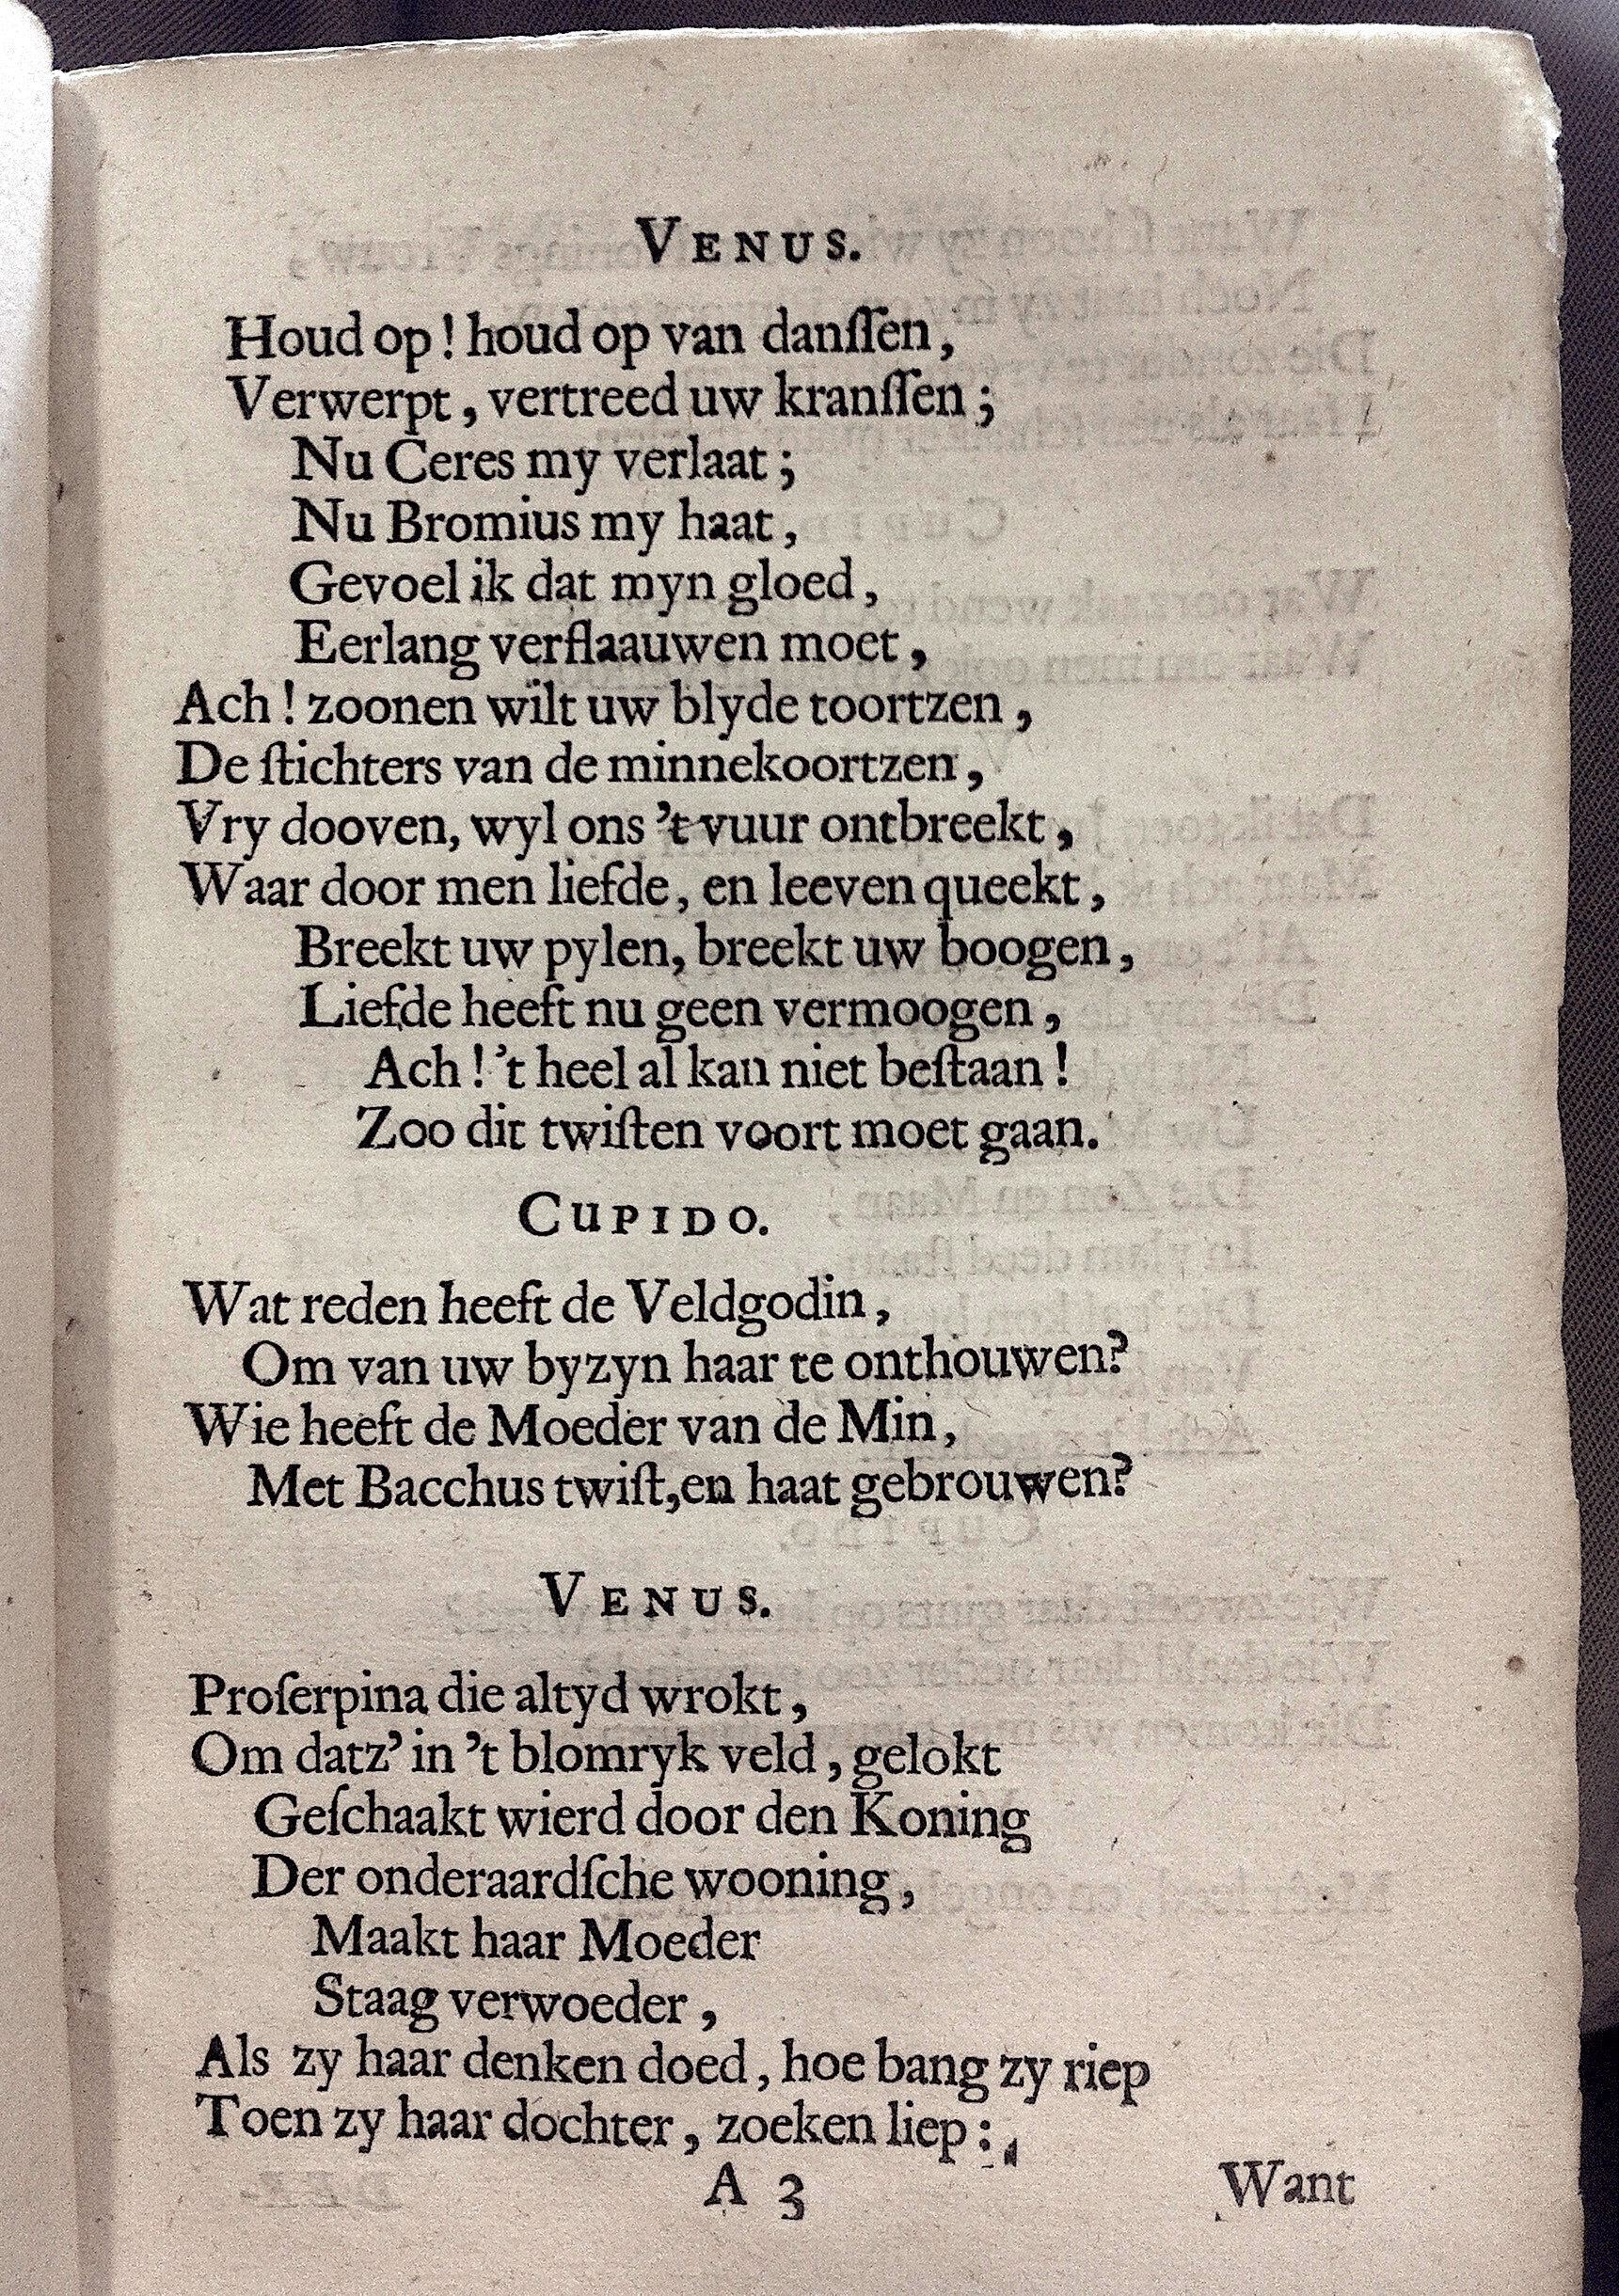 VENUS.
Houd op! houd op van danſſen,
Verwerpt, vertreed uw kranſſen;
Nu Ceres my verlaat;
Nu Bromius my haat,
Gevoel ik dat myn gloed,
Eerlang verflaauwen moet,
Ach! zoonen wilt uw blyde toortzen,
De ſtichters van de minnekoortzen,
Vry dooven, wyl ons 't vuur ontbreekt,
Waar door men liefde, en leeven queekt,
Breekt uw pylen, breekt uw boogen,
Liefde heeft nu geen vermoogen,
Ach! 't heel al kan niet beſtaan!
Zoo dit twiſten voort moet gaan.
CUPIDO.
Wat reden heeft de Veldgodin,
Om van uw byzyn haar te onthouwen?
Wie heeft de Moeder van de Min,
Met Bacchus twiſt,en haat gebrouwen?
VENUS.
Proſerpina die altyd wrokt,
Om datz' in 't blomryk veld, gelokt
Geſchaakt wierd door den Koning
Der onderaardſche wooning,
Maakt haar Moeder
Staag verwoeder,
Als zy haar denken doed, hoe bang zy riep
Toen zy haar dochter, zoeken liep:
A 3 Want